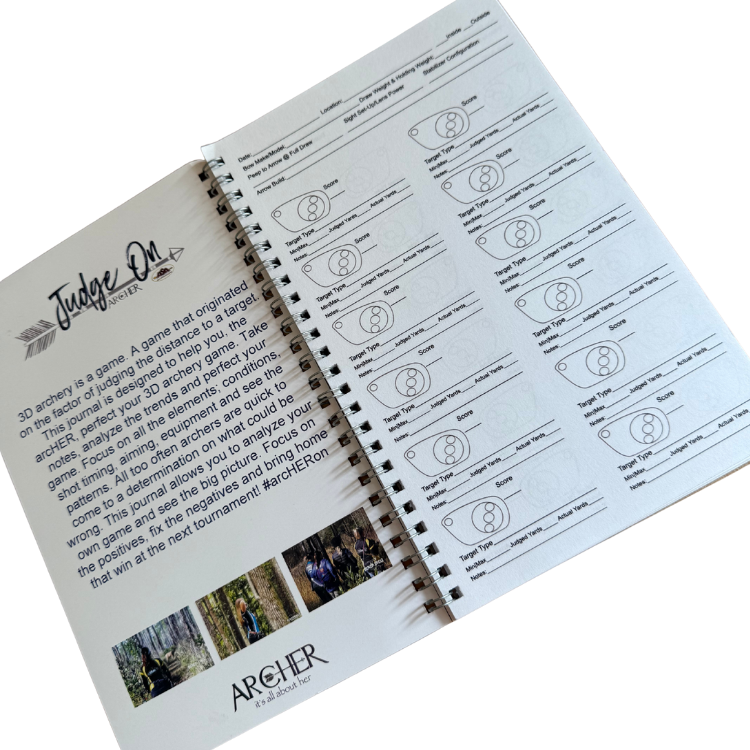 Judge On
ARCHER
3D archery is a game. A game that originated
on the factor of judging the distance to a target.
This journal is designed to help you, the
arcHER, perfect your 3D archery game. Take
notes, analyze the trends and perfect your
game. Focus on all the elements; conditions,
shot timing, aiming, equipment and see the
patterns. All too often archers are quick to
come to a determination on what could be
wrong. This journal allows you to analyze your
own game and see the big picture. Focus on
the positives, fix the negatives and bring home
that win at the next tournament! #arcHERon
ARCHER
it's all about her
Date: Location: Inside Outside
Bow Make/Model: Draw Weight & Holding Weight:
Peep to Arrow @ Full Draw Sight Set-Up/Lens Power Stabilizer Configuration:
Arrow Build:
Score
Target Type
Min|Max Judged Yards Actual Yards
Notes:
Score
Target Type
Min|Max Judged Yards Actual Yards
Notes:
Score
Target Type
Min|Max Judged Yards Actual Yards
Notes:
Score
Target Type
Min|Max Judged Yards Actual Yards
Notes:
Score
Target Type
Min|Max Judged Yards Actual Yards
Notes:
Score
Target Type
Min|Max Judged Yards Actual Yards
Notes:
Score
Target Type
Min|Max Judged Yards Actual Yards
Notes:
Target Type
Min|Max Judged Yards Actual Yards
Notes:
Target Type
Min|Max Judged Yards Actual Yards
Notes:
Target Type
Min|Max Judged Yards Actual Yards
Notes:
Target Type
Min|Max Judged Yards Actual Yards
Notes:
Target Type
Min|Max Judged Yards Actual Yards
Notes: